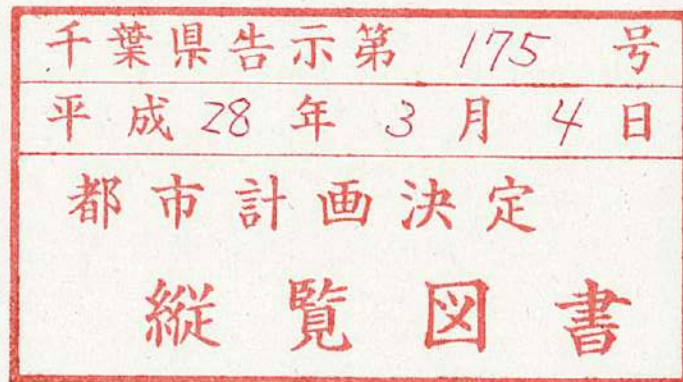 千葉県告示第 175 号
平成 28 年 3 月 4 日
都市計画決定
縦覧図書